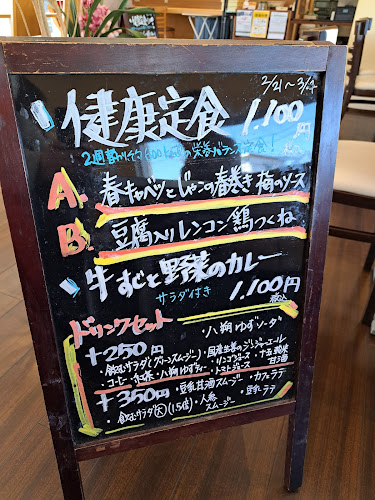 2/21〜3/4
健康定食 1,100円
税込
2週替わり
栄養バランス定食！
A. 春キャベツとじゃこの春巻き 梅のソース
B. 豆腐入りレンコン鶏つくね
牛すじと野菜のカレー
サラダ付き 1,100円
税込
ドリンクセット
・八朔ゆずソーダ
+250円 ・国産生姜のジンジャーエール
・飲むサラダ(グリーンスムージー) ・リンゴジュース ・十五穀米甘酒
・コーヒー ・紅茶 ・八朔ゆずティー ・トマトジュース
+350円 ・豆乳甘酒スムージー ・カフェラテ
・飲むサラダ(大)(1.5倍) ・人参スムージー ・豆乳ラテ